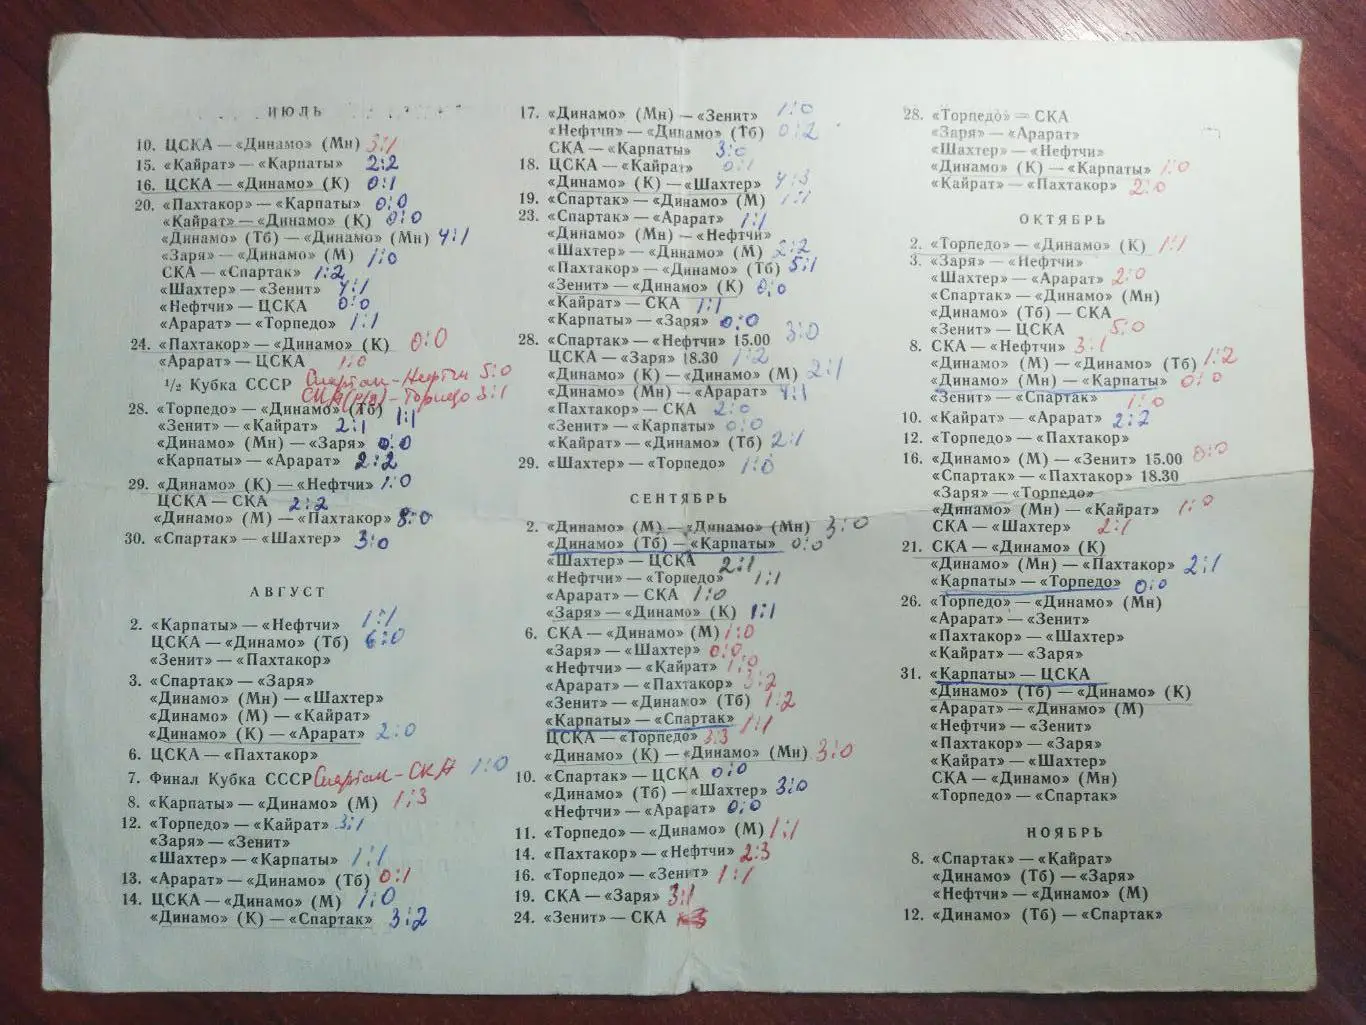 ИЮЛЬ
10. ЦСКА — «Динамо» (Мн) 3:1
15. «Кайрат» — «Карпаты» 2:2
16. ЦСКА — «Динамо» (К) 0:1
20. «Пахтакор» — «Карпаты» 0:0
«Кайрат» — «Динамо» (К) 0:0
«Динамо» (Тб) — «Динамо» (Мн) 4:1
«Заря» — «Динамо» (М) 1:0
СКА — «Спартак» 1:2
«Шахтер» — «Зенит» 4:1
«Нефтчи» — ЦСКА 0:0
«Арарат» — «Торпедо» 1:1
24. «Пахтакор» — «Динамо» (К) 0:0
«Арарат» — ЦСКА 1:0
1/2 Кубка СССР Спартак-Нефтчи 5:0
СКА(Р/Д)-Торпедо 3:1
28. «Торпедо» — «Динамо» (Тб) 1:1
«Зенит» — «Кайрат» 2:1
«Динамо» (Мн) — «Заря» 0:0
«Карпаты» — «Арарат» 2:2
29. «Динамо» (К) — «Нефтчи» 1:0
ЦСКА — СКА 2:2
«Динамо» (М) — «Пахтакор» 8:0
30. «Спартак» — «Шахтер» 3:0
АВГУСТ
2. «Карпаты» — «Нефтчи» 1:1
ЦСКА — «Динамо» (Тб) 6:0
«Зенит» — «Пахтакор»
3. «Спартак» — «Заря»
«Динамо» (Мн) — «Шахтер»
«Динамо» (М) — «Кайрат»
«Динамо» (К) — «Арарат» 2:0
6. ЦСКА — «Пахтакор»
7. Финал Кубка СССР Спартак-СКА 1:0
8. «Карпаты» — «Динамо» (М) 1:3
12. «Торпедо» — «Кайрат» 3:1
«Заря» — «Зенит»
«Шахтер» — «Карпаты» 1:1
13. «Арарат» — «Динамо» (Тб) 0:1
14. ЦСКА — «Динамо» (М) 1:0
«Динамо» (К) — «Спартак» 3:2
17. «Динамо» (Мн) — «Зенит» 1:0
«Нефтчи» — «Динамо» (Тб) 0:2
СКА — «Карпаты» 3:0
18. ЦСКА — «Кайрат» 0:1
«Динамо» (К) — «Шахтер» 4:3
19. «Спартак» — «Динамо» (М) 1:1
23. «Спартак» — «Арарат» 1:1
«Динамо» (Мн) — «Нефтчи»
«Шахтер» — «Динамо» (М) 2:2
«Пахтакор» — «Динамо» (Тб) 5:1
«Зенит» — «Динамо» (К) 0:0
«Кайрат» — СКА 1:1
«Карпаты» — «Заря» 0:0
28. «Спартак» — «Нефтчи» 15.00 3:0
ЦСКА — «Заря» 18.30 1:2
«Динамо» (К) — «Динамо» (М) 2:1
«Динамо» (Мн) — «Арарат» 4:1
«Пахтакор» — СКА 2:0
«Зенит» — «Карпаты» 0:0
«Кайрат» — «Динамо» (Тб) 2:1
29. «Шахтер» — «Торпедо» 1:0
СЕНТЯБРЬ
2. «Динамо» (М) — «Динамо» (Мн) 3:0
«Динамо» (Тб) — «Карпаты» 0:0
«Шахтер» — ЦСКА 2:1
«Нефтчи» — «Торпедо» 1:1
«Арарат» — СКА 1:0
«Заря» — «Динамо» (К) 1:1
6. СКА — «Динамо» (М) 1:0
«Заря» — «Шахтер» 0:0
«Нефтчи» — «Кайрат» 1:0
«Арарат» — «Пахтакор» 3:2
«Зенит» — «Динамо» (Тб) 1:2
«Карпаты» — «Спартак» 1:1
ЦСКА — «Торпедо» 3:3
«Динамо» (К) — «Динамо» (Мн) 3:0
10. «Спартак» — ЦСКА 0:0
«Динамо» (Тб) — «Шахтер» 3:0
«Нефтчи» — «Арарат» 0:0
11. «Торпедо» — «Динамо» (М) 1:1
14. «Пахтакор» — «Нефтчи» 2:3
16. «Торпедо» — «Зенит» 1:1
19. СКА — «Заря» 3:1
24. «Зенит» — СКА
28. «Торпедо» — СКА
«Заря» — «Арарат»
«Шахтер» — «Нефтчи»
«Динамо» (К) — «Карпаты» 1:0
«Кайрат» — «Пахтакор» 2:0
ОКТЯБРЬ
2. «Торпедо» — «Динамо» (К) 1:1
3. «Заря» — «Нефтчи»
«Шахтер» — «Арарат» 2:0
«Спартак» — «Динамо» (Мн)
«Динамо» (Тб) — СКА
«Зенит» — ЦСКА 5:0
8. СКА — «Нефтчи» 3:1
«Динамо» (М) — «Динамо» (Тб) 1:2
«Динамо» (Мн) — «Карпаты» 0:0
«Зенит» — «Спартак» 1:0
10. «Кайрат» — «Арарат» 2:2
12. «Торпедо» — «Пахтакор»
16. «Динамо» (М) — «Зенит» 15.00 0:0
«Спартак» — «Пахтакор» 18.30
«Заря» — «Торпедо»
«Динамо» (Мн) — «Кайрат» 1:0
СКА — «Шахтер» 2:1
21. СКА — «Динамо» (К)
«Динамо» (Мн) — «Пахтакор» 2:1
«Карпаты» — «Торпедо» 0:0
26. «Торпедо» — «Динамо» (Мн)
«Арарат» — «Зенит»
«Пахтакор» — «Шахтер»
«Кайрат» — «Заря»
31. «Карпаты» — ЦСКА
«Динамо» (Тб) — «Динамо» (К)
«Арарат» — «Динамо» (М)
«Нефтчи» — «Зенит»
«Пахтакор» — «Заря»
«Кайрат» — «Шахтер»
СКА — «Динамо» (Мн)
«Торпедо» — «Спартак»
НОЯБРЬ
8. «Спартак» — «Кайрат»
«Динамо» (Тб) — «Заря»
«Нефтчи» — «Динамо» (М)
12. «Динамо» (Тб) — «Спартак»